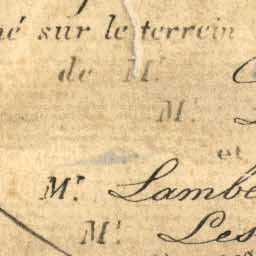 né sur le terrein
de M.r
M.r
et
M.r Lambe
M.r Les